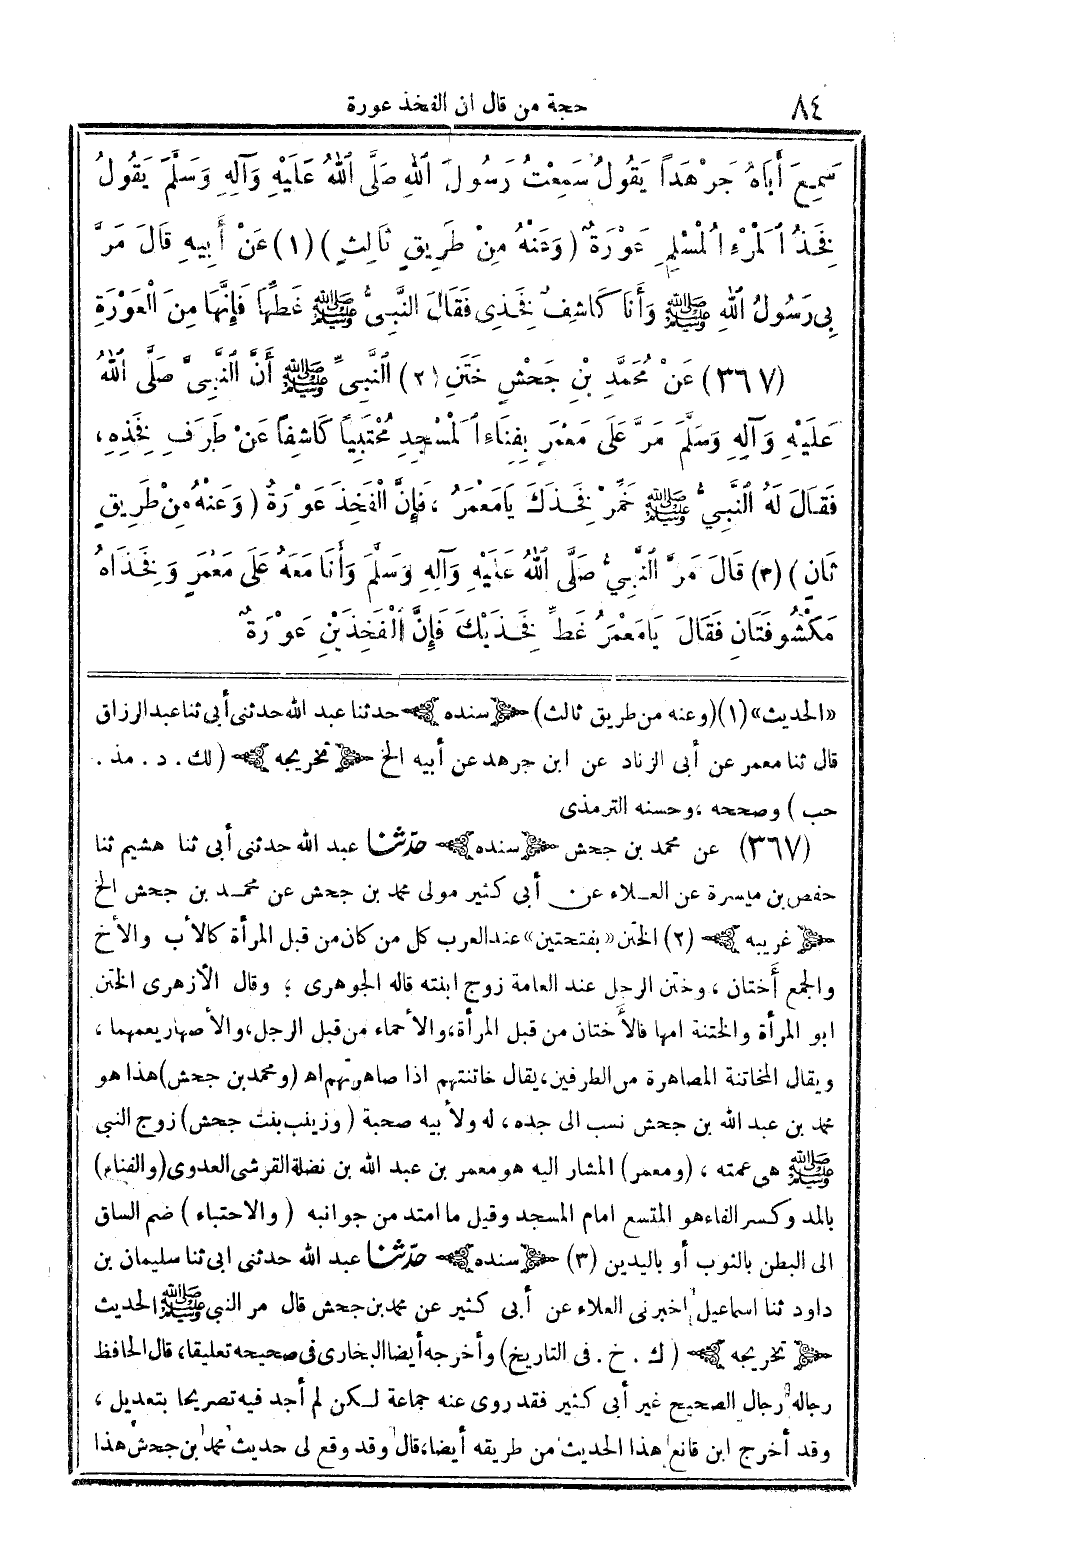 ٨٤
حجة من قال ان الفخذ عورة
سَمِعَ أَبَاهُ جَرْهَدًا يَقُولُ سَمِعْتُ رَسُولَ اللهِ صَلَّى اللهُ عَلَيْهِ وَآلِهِ وَسَلَّمَ يَقُولُ
فَخِذُ الْمَرْءِ الْمُسْلِمِ عَوْرَةٌ (وَعَنْهُ مِنْ طَرِيقٍ ثَالِثٍ) (١) عَنْ أَبِيهِ قَالَ مَرَّ
بِي رَسُولُ اللهِ ﷺ وَأَنَا كَاشِفٌ فَخِذِي فَقَالَ النَّبِيُّ ﷺ غَطِّهَا فَإِنَّهَا مِنَ الْعَوْرَةِ
(٣٦٧) عَنْ مُحَمَّدِ بْنِ جَحْشٍ خَتَنِ (٢) النَّبِيِّ ﷺ أَنَّ النَّبِيَّ صَلَّى اللهُ
عَلَيْهِ وَآلِهِ وَسَلَّمَ مَرَّ عَلَى مَعْمَرٍ بِفِنَاءِ الْمَسْجِدِ مُحْتَبِيًا كَاشِفًا عَنْ طَرَفِ فَخِذِهِ،
فَقَالَ لَهُ النَّبِيُّ ﷺ خَمِّرْ فَخِذَكَ يَامَعْمَرُ، فَإِنَّ الْفَخِذَ عَوْرَةٌ (وَعَنْهُ مِنْ طَرِيقٍ
ثَانٍ) (٣) قَالَ مَرَّ النَّبِيُّ صَلَّى اللهُ عَلَيْهِ وَآلِهِ وَسَلَّمَ وَأَنَا مَعَهُ عَلَى مَعْمَرٍ وَفَخِذَاهُ
مَكْشُوفَتَانِ فَقَالَ يَامَعْمَرُ غَطِّ فَخِذَيْكَ فَإِنَّ الْفَخِذَيْنِ عَوْرَةٌ
«الحديث» (١) (وعنه من طريق ثالث) ﴿سنده﴾ حدثنا عبد الله حدثنى أبى ثنا عبد الرزاق
قال ثنا معمر عن أبى الزناد عن ابن جرهد عن أبيه الخ ﴿تخريجه﴾ (لك . د . مذ .
حب) وصححه، وحسنه الترمذى
(٣٦٧) عن محمد بن جحش ﴿سنده﴾ حدّثنا عبد الله حدثنى أبى ثنا هشيم ثنا
حفص بن ميسرة عن العلاء عن أبى كثير مولى محمد بن جحش عن محمد بن جحش الخ
﴿غريبه﴾ (٢) الختن «بفتحتين» عند العرب كل من كان من قبل المرأة كالأب والأخ
والجمع أختان، وختن الرجل عند العامة زوج ابنته قاله الجوهرى ؛ وقال الأزهرى الختن
ابو المرأة والختنة امها فالأختان من قبل المرأة، والأحماء من قبل الرجل، والأصهار يعمهما،
ويقال المخاتنة المصاهرة من الطرفين، يقال خاتنتهم اذا صاهرتهم اه (ومحمد بن جحش) هذا هو
محمد بن عبد الله بن جحش نسب الى جده، له ولأبيه صحبة (وزينب بنت جحش) زوج النبي
ﷺ هى عمته، (ومعمر) المشار اليه هو معمر بن عبد الله بن نضلة القرشى العدوى (والفناء)
بالمد وكسر الفاء هو المتسع امام المسجد وقيل ما امتد من جوانبه (والاحتباء) ضم الساق
الى البطن بالثوب أو باليدين (٣) ﴿سنده﴾ حدّثنا عبد الله حدثنى ابى ثنا سليمان بن
داود ثنا اسماعيل اخبرنى العلاء عن أبى كثير عن محمد بن جحش قال مر النبي ﷺ الحديث
﴿تخريجه﴾ (ك . خ . فى التاريخ) وأخرجه أيضا البخارى فى صحيحه تعليقا، قال الحافظ
رجاله رجال الصحيح غير أبى كثير فقد روى عنه جماعة لكن لم أجد فيه تصريحا بتعديل،
وقد أخرج ابن قانع هذا الحديث من طريقه أيضا، قال وقد وقع لى حديث محمد بن جحش هذا